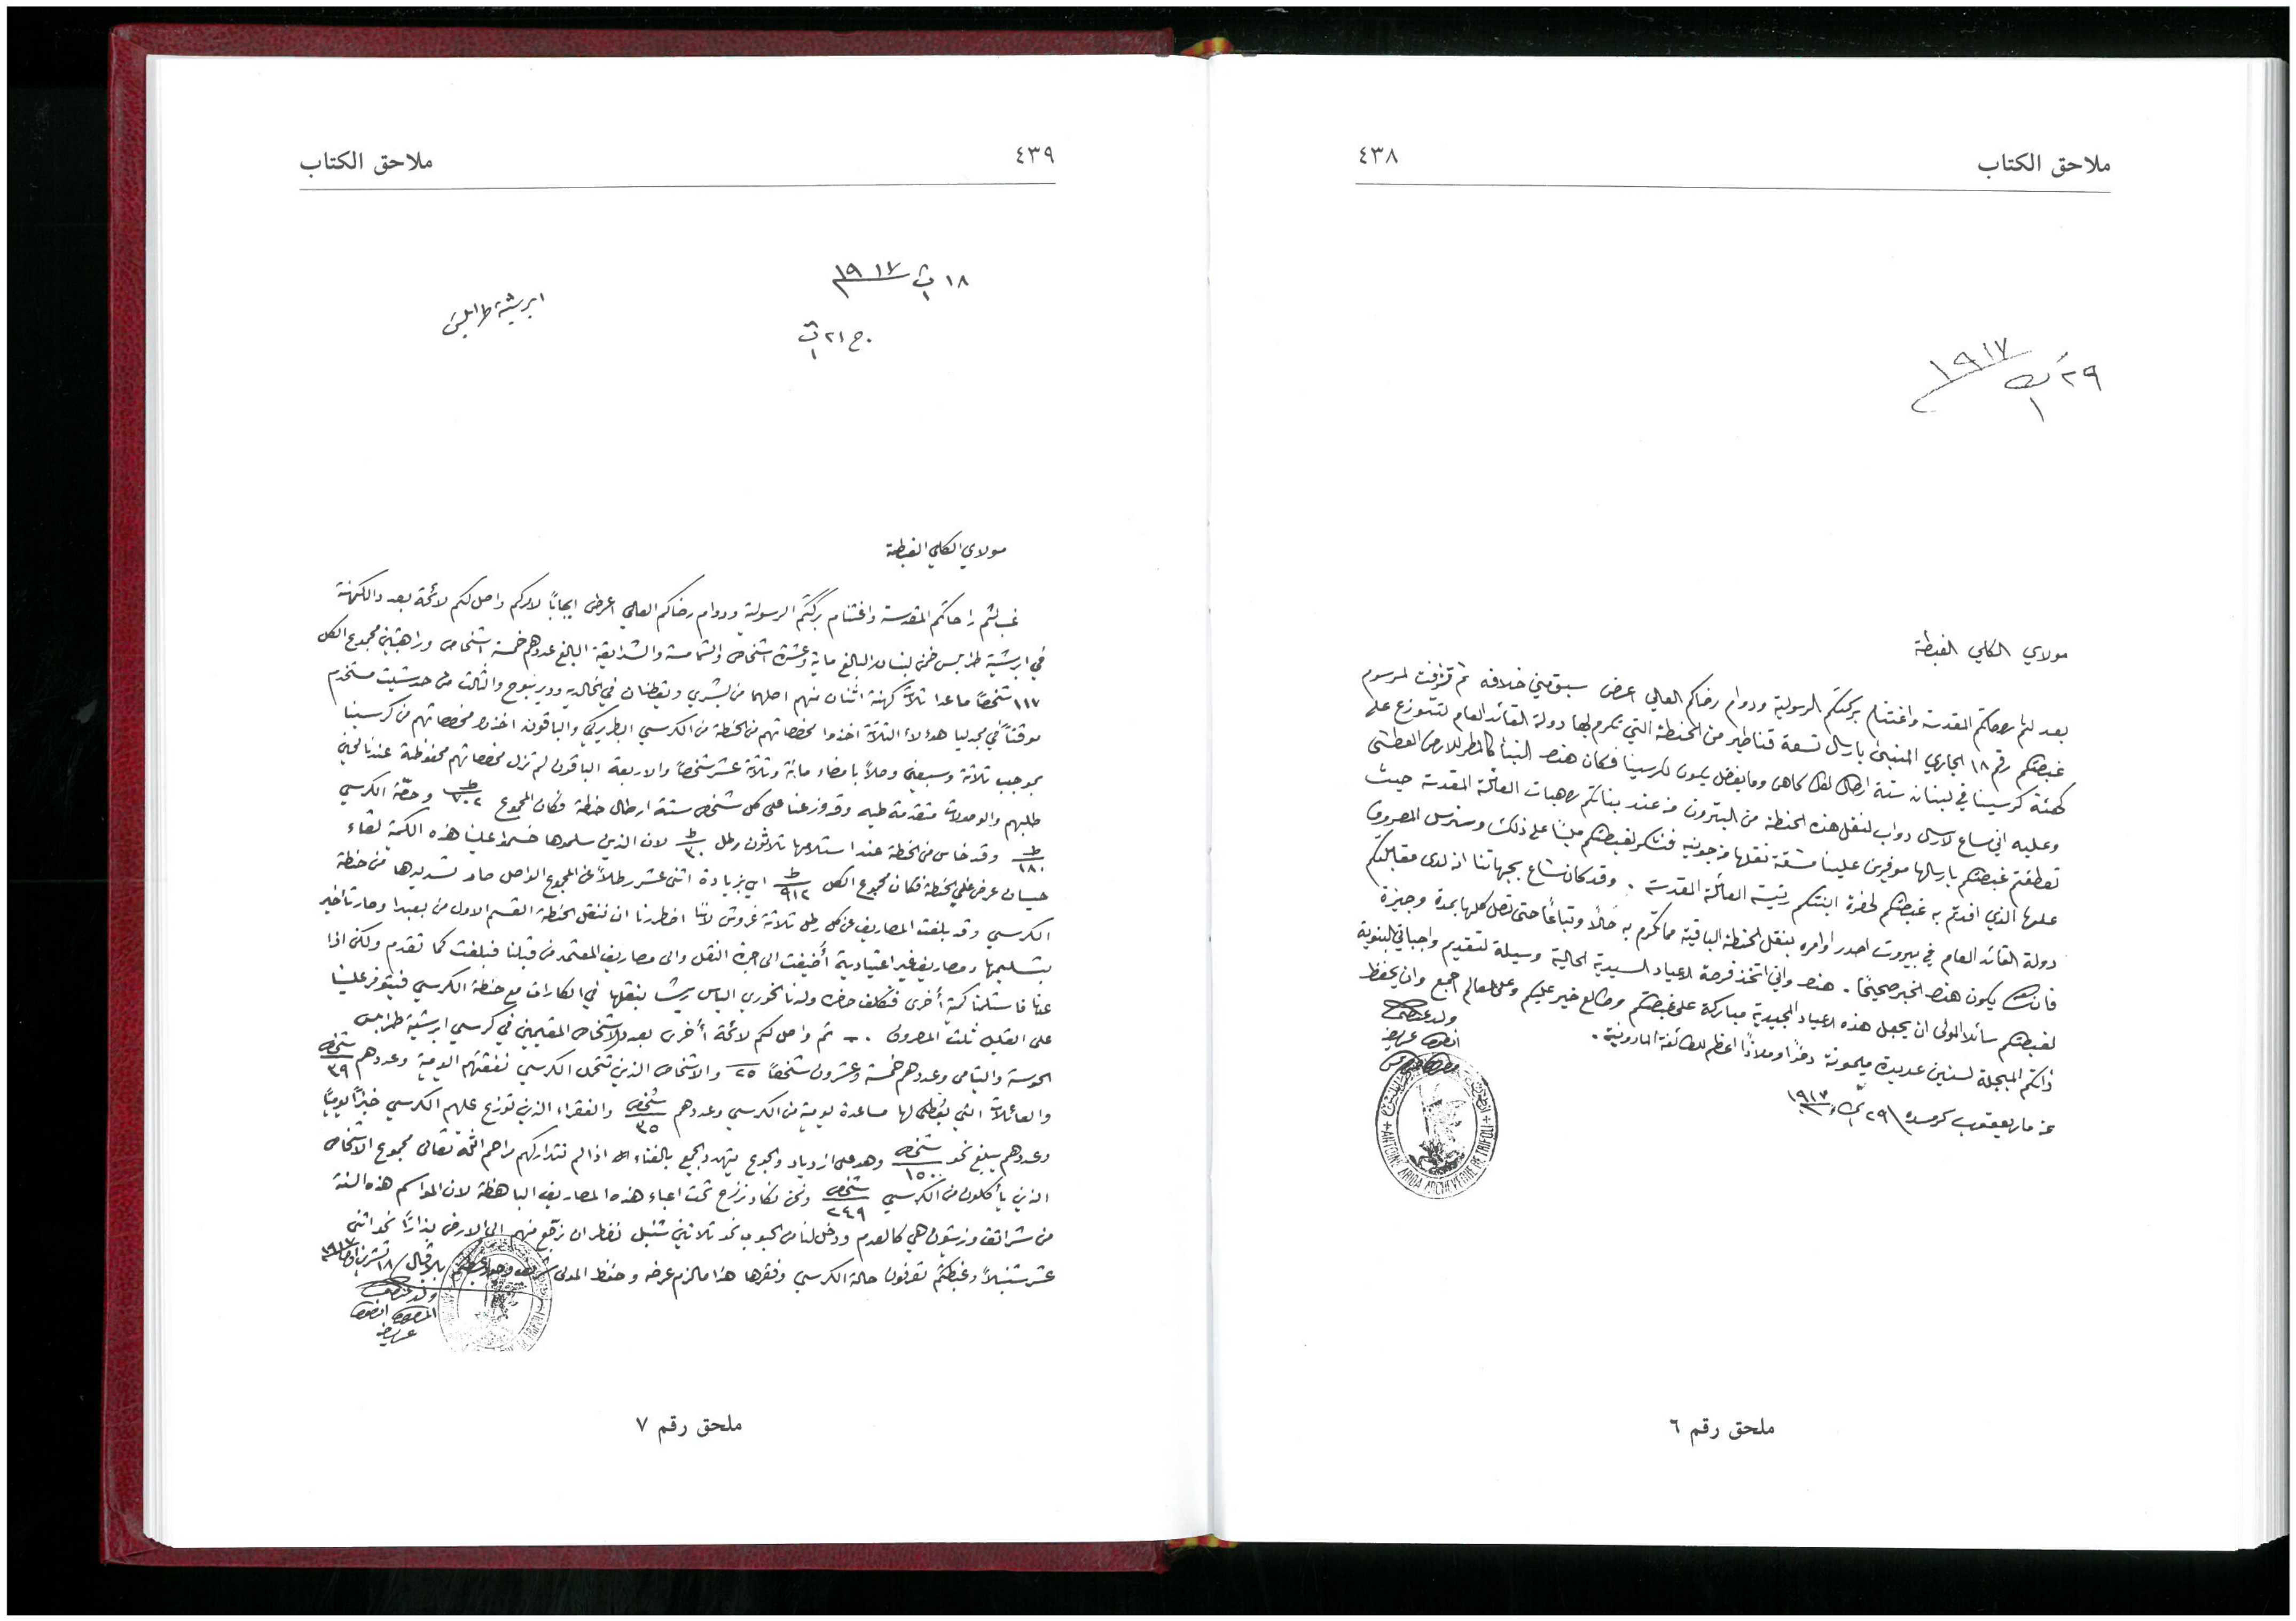 ملاحق الكتاب
٤٣٨
٢٩ ك١ ١٩١٧
مولاي الكلي الغبطة
بعد لثم راحاتكم المقدسة واغتنام بركتكم الرسولية ودوام رضاكم العالي اعرض سبق مني خلافه ثم تشرفت لمرسوم
غبطتكم رقم ١٨ الجاري المنبئ بارسال تسعة قناطير من الحنطة التي تكرم بها دولة القائد العام لتتوزع على
كهنة كرسينا في لبنان ستة ارطال لكل كاهن وما يفضل يكون لكرسينا فكان هذا النبأ كالمطر للارض العطشى
وعليه اني ساع لارسال دواب لنقل هذه الحنطة من البترون من عند بناتكم راهبات العائلة المقدسة حيث
تعطفتم غبطتكم بارسالها موفرين علينا مشقة نقلها من جونيه فنشكر لغبطتكم ملياً على ذلك وسنرسل المصروف
عليها الذي افدتم به غبطتكم لحضرة ابنتكم رئيسة العائلة المقدسة . وقد كان شاع بجهاتنا ان لدى مقابلتكم
دولة القائد العام في بيروت اصدر اوامره بنقل الحنطة الباقية مما تكرم به حالاً وتباعاً حتى تصل كلها بمدة وجيزة
يكون هذا الخبر صحيحاً . هذا واني اتخذ فرصة الاعياد السيدية الحالية وسيلة لتقديم واجباتي البنوية
لغبطتكم سائلاً المولى ان يجعل هذه الاعياد المجيدية مباركة على غبطتكم وطالع خير عليكم وعلى العالم اجمع وان يحفظ
ذاتكم المبجلة لسنين عديدة ميمونة ذخراً وملاذاً اعظم للطائفة المارونية .
عن مار يعقوب كرمسده ٢٩ ك١ ١٩١٧
ولد غبطتكم
انطون عريضه
+ ANTOINE ARIDA ARCHEVEQUE DE TRIPOLI +
ملحق رقم ٦
٤٣٩
ملاحق الكتاب
١٨ ت١ ١٩١٧
ج ٢١ ت١
ابرشية طرابلس
مولاي الكلي الغبطة
غب لثم راحاتكم المقدسة واغتنام بركتكم الرسولية ودوام رضاكم العالي اعرض ايجاباً لامركم واصل لكم لائحة بعدد الكهنة
في ابرشية طرابلس ضمن لبنان البالغ ماية وعشرة اشخاص والشمامسة والشدايقة البالغ عددهم خمسة اشخاص وراهبتين مجموع الكل
١١٧ شخصاً ما عدا ثلاثة كهنة اثنان منهم اصلهما من بشري ويقطنان في الخالديه ودير نبوح والثالث من حدشيت مستخدم
موقتاً في مجدليا هؤلاء الثلاثة اخذوا مخصصاتهم من الحنطة من الكرسي البطريركي والباقون اخذوا مخصصاتهم من كرسينا
بموجب ثلاثة وسبعين وصلاً بامضاء مائة وثلاثة عشر شخصاً والاربعة الباقون لم تزل مخصصاتهم محفوظة عندنا لحين
طلبهم والوصولات متقدمة طيه وقد وزعنا على كل شخص ستة ارطال حنطة فكان المجموع ط ٧٠٢ وحصة الكرسي
ط ١٨٠ وقد خاس من الحنطة عند استلامها ثلاثون رطل ط ٣٠ لان الذين سلموها خسروا علينا هذه الكمية لقاء
حسبان عرض على الحنطة فكان مجموع الكل ط ٩١٢ اي بزيادة اثني عشر رطلاً عن المجموع الواصل صار تسديدها من حنطة
الكرسي وقد بلغت المصاريف عن كل رطل ثلاثة غروش لاننا اضطررنا ان ننقل الحنطة القسم الاول من بعبدا وصار تأخير
بتسليمها ومصاريف غير اعتيادية أضيفت الى اجرة النقل والى مصاريف المعتمد من قبلنا فبلغت كما تقدم ولكن اذا
عنا فاستلمنا كمية أخرى فنكلف حضرة ولدنا الخوري الياس بنقلها في الكارات مع حنطة الكرسي فيتوفر علينا
على القليل ثلث المصروف . - ثم واصل لكم لائحة أخرى بعدد الاشخاص المقيمين في كرسي ابرشية طرابلس
الحوسة واليتامى وعددهم خمسة وعشرون شخصاً ٢٥ والاشخاص الذين يتحمل الكرسي نفقتهم اليومية وعددهم شخص ٣٩
والعائلات التي يُعطى لها مساعدة يومية من الكرسي وعددهم شخص ٣٥ والفقراء الذين توزع عليهم الكرسي خبزاً يومياً
وعددهم يبلغ نحو شخص ١٥٠ وهو على ازدياد والجوع يتهدد الجميع بالفناء اذا لم تتداركهم مراحم الله تعالى مجموع الاشخاص
الذين يأكلون من الكرسي شخص ٢٤٩ ونحن نكاد نرزح تحت اعباء هذه المصاريف الباهظة لان المواسم هذه السنة
من شرانق وزيتون هي كالعدم ودخل لنا من الحبوب نحو ثلاثين شنبل نضطر ان نرجع منهم الى الارض بذاراً نحو اثني
عشر شنبلاً وغبطتكم تعرفون حالة الكرسي وفقرها هذا ما لزم عرضه وحفظ المولى ١٨ تشرين اول ١٩١٧
ولد غبطتكم
المطران انطون
عريضه
ملحق رقم ٧